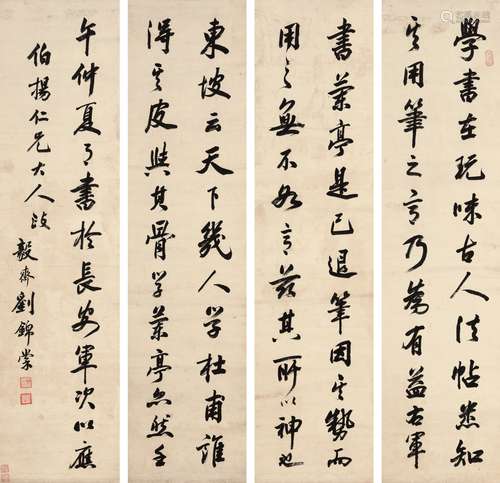 學書在玩味古人法帖悉知
其用筆之意乃爲有益右軍
書蘭亭是已退筆因其勢而
用之無不如意茲其所以神也
東坡云天下幾人學杜甫誰
得其皮與其骨學蘭亭亦然壬
午仲夏月書於長安軍次以應
伯楊仁兄大人政
毅齋劉錦棠